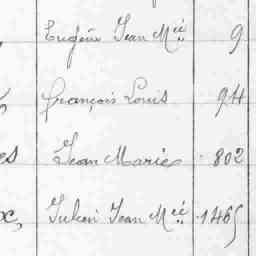 Eugène Jean Mie 9
François Louis 94
es Jean Marie 802
x, Julien Jean Mie 1465